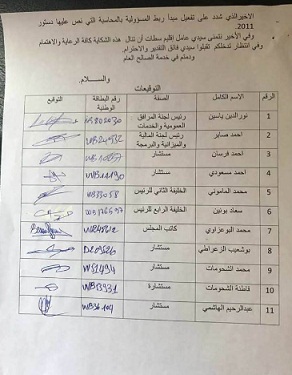 الاخيرالذي شدد على تفعيل مبدأ ربط المسؤولية بالمحاسبة التي نص عليها دستور
2011.
وفي الأخير نتمنى سيدي عامل إقليم سطات أن تنال هذه الشكاية كافة الرعاية والاهتمام
وفي انتظار تدخلكم تقبلوا سيدي فائق التقدير والاحترام.
ودمتم في خدمة الصالح العام
والســــــلام.
التوقيعات
الرقم الاسم الكامل الصفة رقم البطاقة الوطنية التوقيع
1 نورالدين ياسين رئيس لجنة المرافق العمومية والخدمات
2 احمد صابر رئيس لجنة المالية والميزانية والبرمجة
3 احمد فرسان مستشار
4 احمد مسعودي مستشار
5 محمد الحاموني الخليفة الثاني للرئيس
6 سعاد بونين الخليفة الرابع للرئيس
7 محمد البوعزاوي كاتب المجلس
8 بوشعيب الزعراطي مستشار D209526
9 محمد الشحومات مستشار W52494
10 فاتنة الشحومات مستشارة WB13931
11 عبدالرحيم الهاشمي